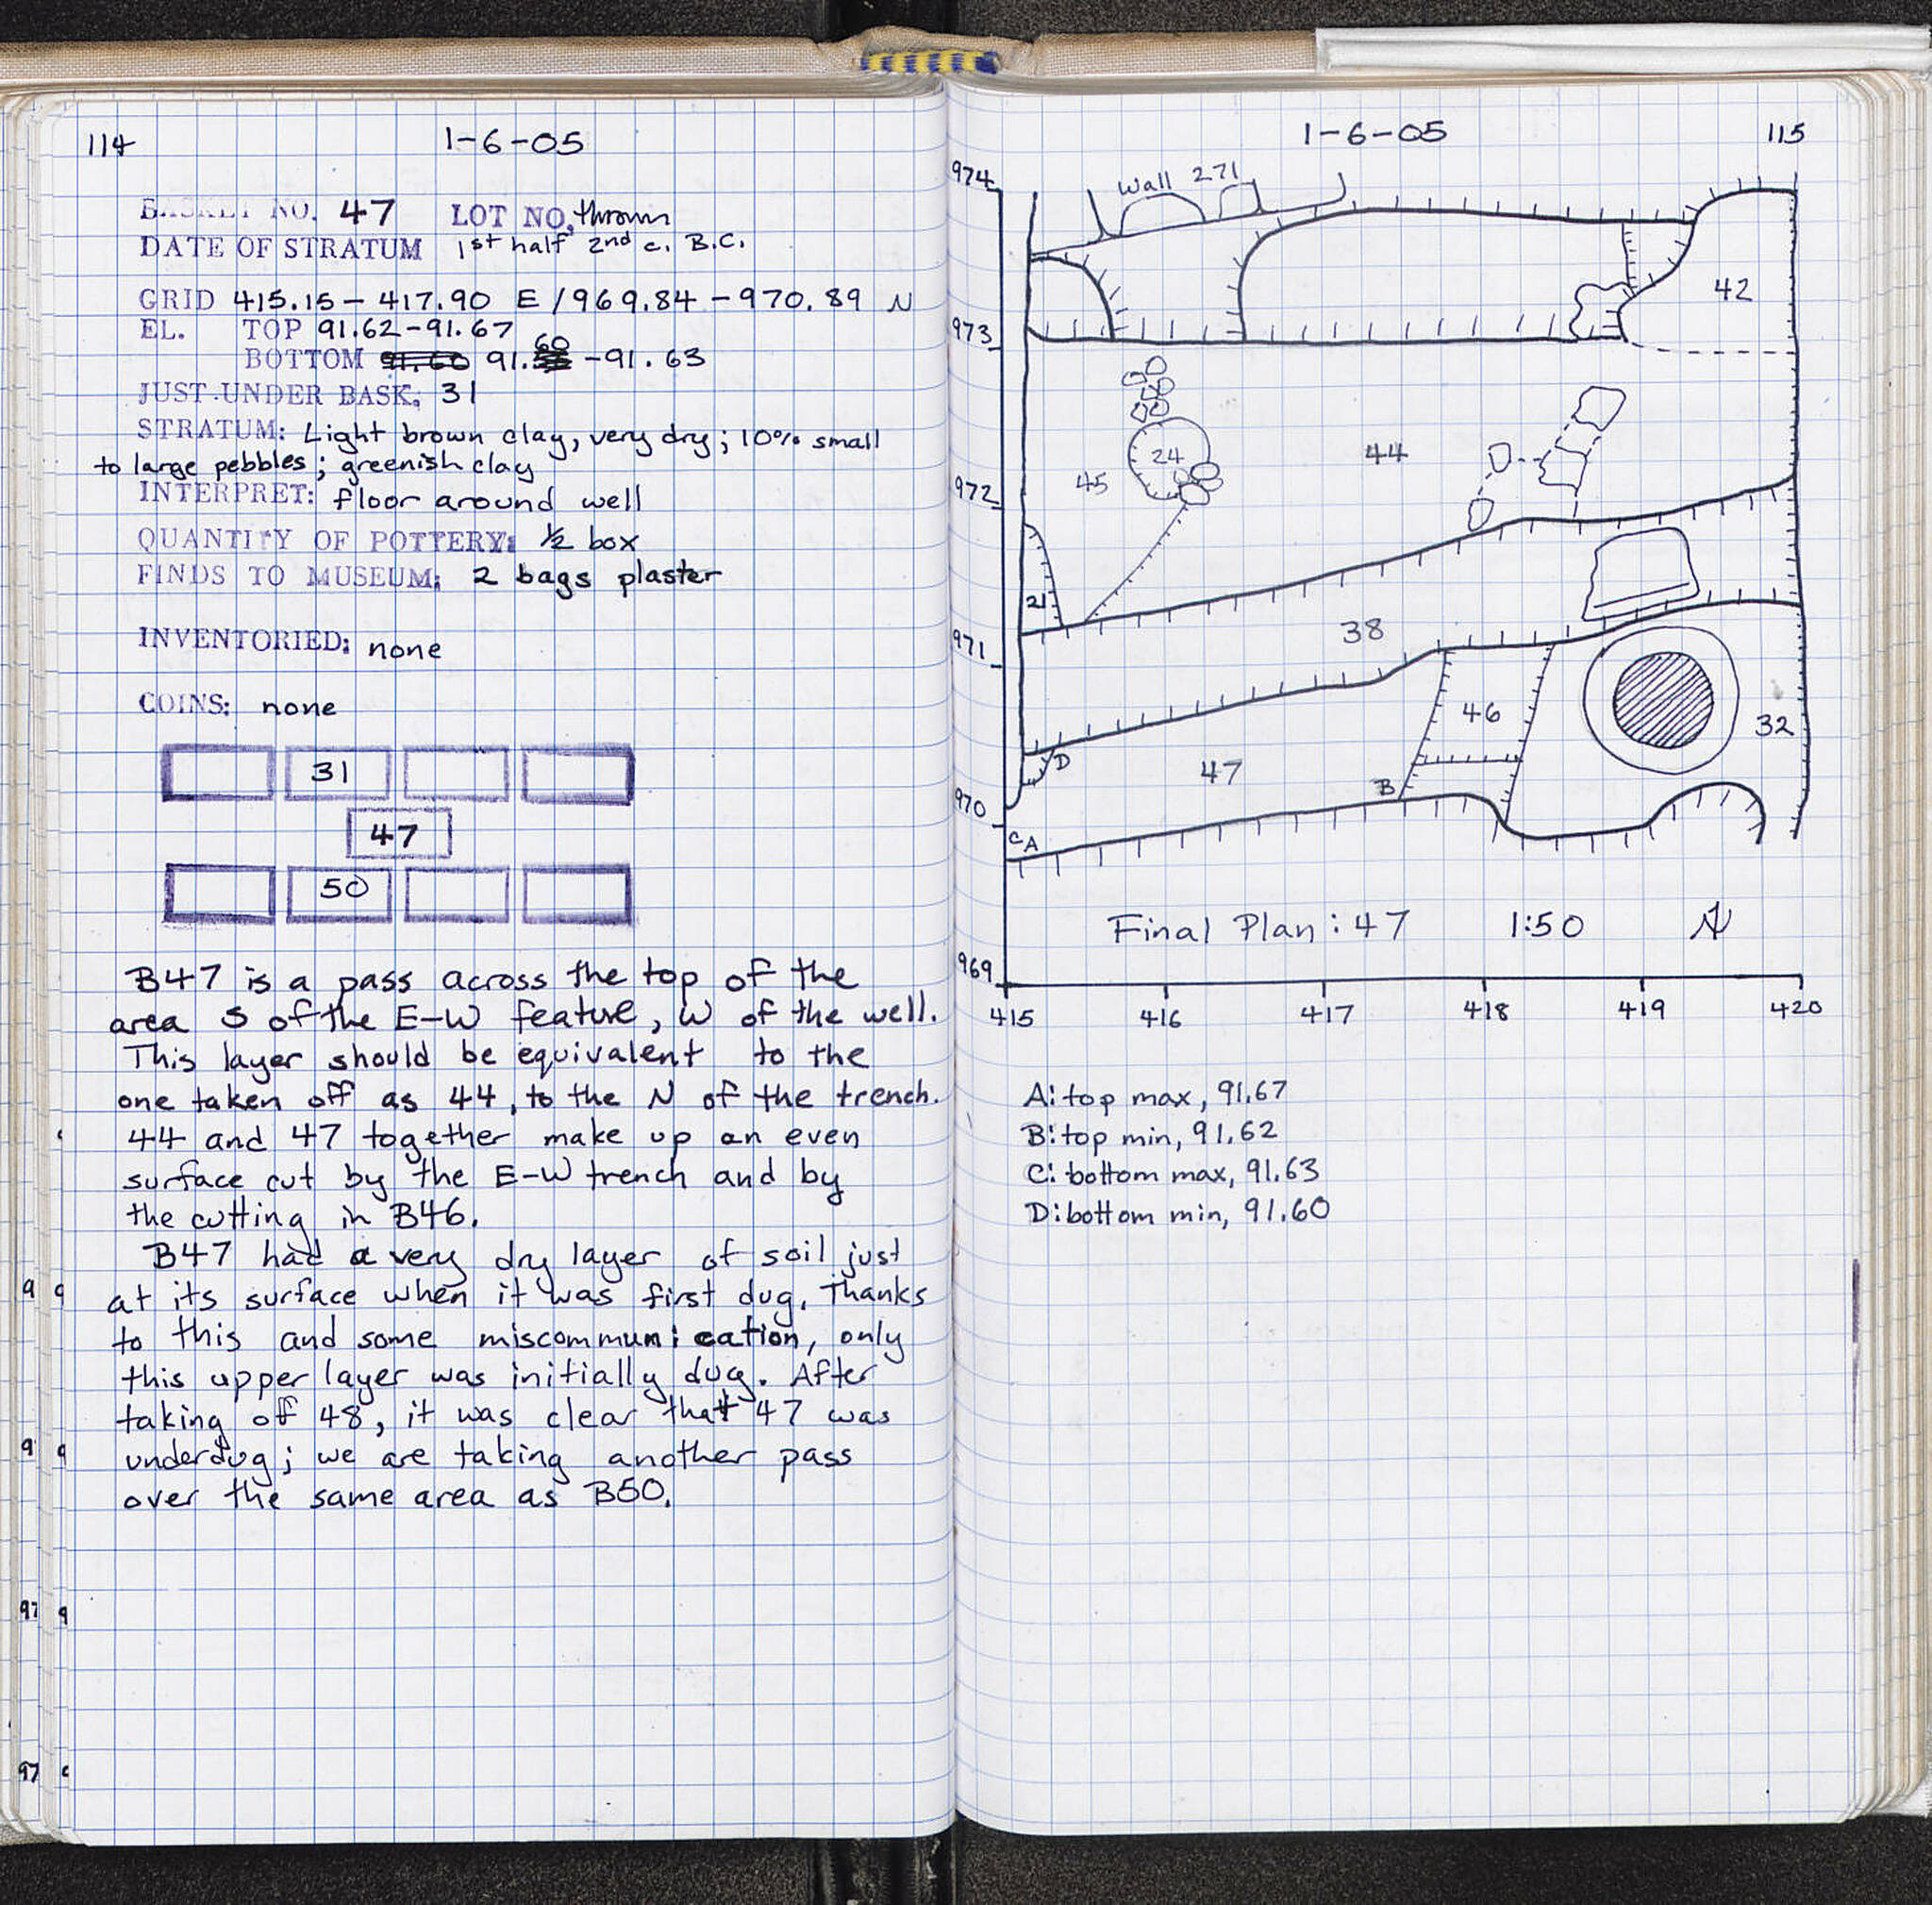 114 1-6-05
BASKET NO. 47 LOT NO. thrown
DATE OF STRATUM 1st half 2nd c. B.C.
GRID 415.15-417.90 E /969.84-970.89 N
EL. TOP 91.62-91.67
BOTTOM 91.60 91.60 -91.63
JUST UNDER BASK: 31
STRATUM: Light brown clay, very dry; 10% small
to large pebbles; greenish clay
INTERPRET: floor around well
QUANTITY OF POTTERY: ½ box
FINDS TO MUSEUM: 2 bags plaster
INVENTORIED: none
COINS: none
31
47
50
B47 is a pass across the top of the
area S of the E-W feature, W of the well.
This layer should be equivalent to the
one taken off as 44, to the N of the trench.
44 and 47 together make up an even
surface cut by the E-W trench and by
the cutting in B46.
B47 had a very dry layer of soil just
at its surface when it was first dug. Thanks
to this and some miscommunication, only
this upper layer was initially dug. After
taking off 48, it was clear that 47 was
underdug; we are taking another pass
over the same area as B50.
1-6-05 115
974
Wall 271
42
973
24
44
45
972
21
971
38
46
32
D
47
B
970
C A
Final Plan: 47 1:50 N
969
415 416 417 418 419 420
A: top max, 91.67
B: top min, 91.62
C: bottom max, 91.63
D: bottom min, 91.60